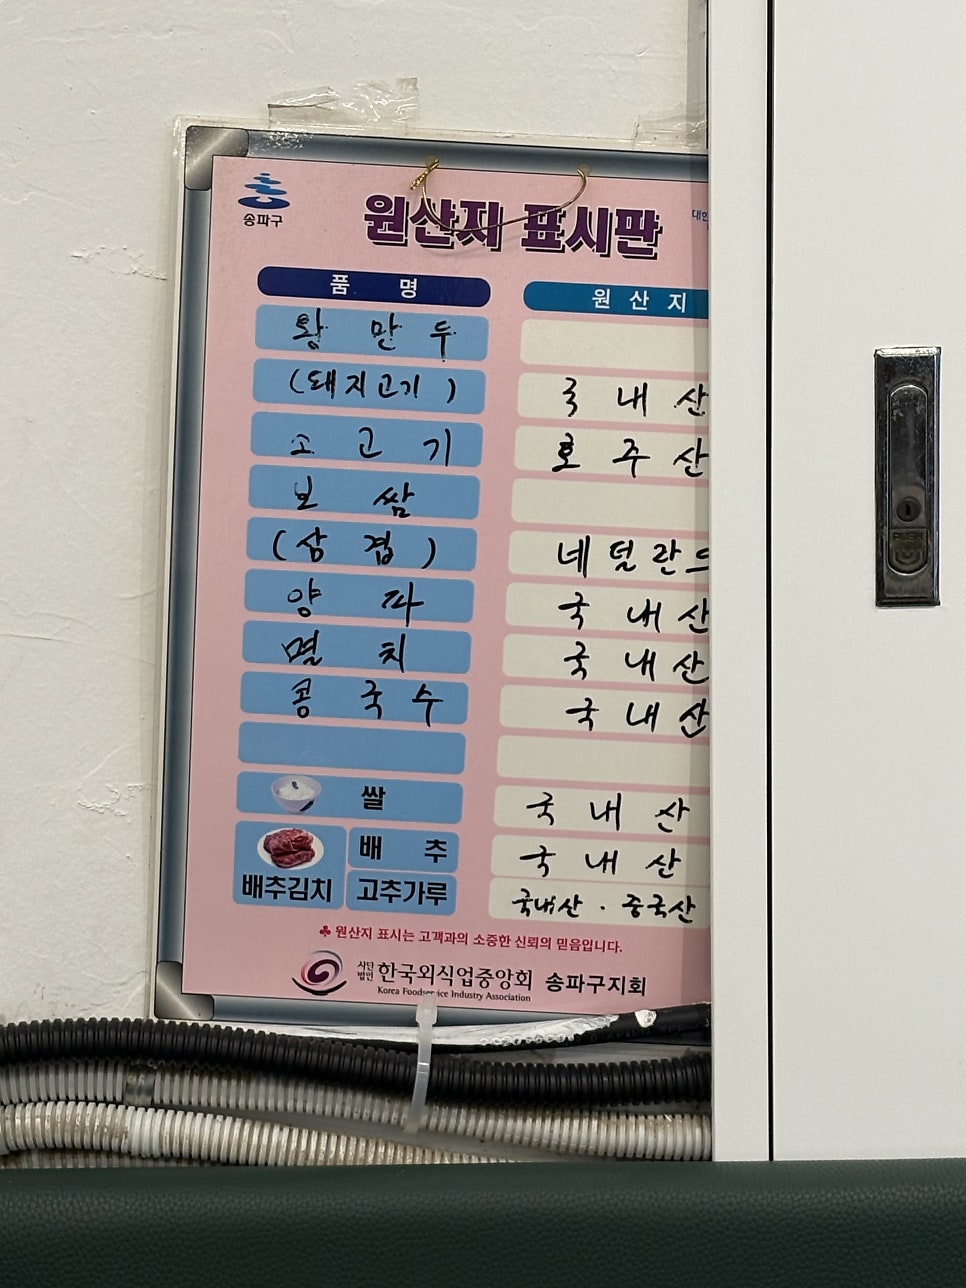 송파구
원산지 표시판
대한
품 명 원 산 지
왕 만 두
(돼지고기) 국 내 산
소 고 기 호 주 산
보 쌈
(삼 겹) 네 덜 란 드
양 파 국 내 산
멸 치 국 내 산
콩 국 수 국 내 산
쌀 국 내 산
배 추 국 내 산
배추김치 고추가루 국내산 · 중국산
♣ 원산지 표시는 고객과의 소중한 신뢰의 믿음입니다.
사단법인 한국외식업중앙회 송파구지회
Korea Foodservice Industry Association
PUSH